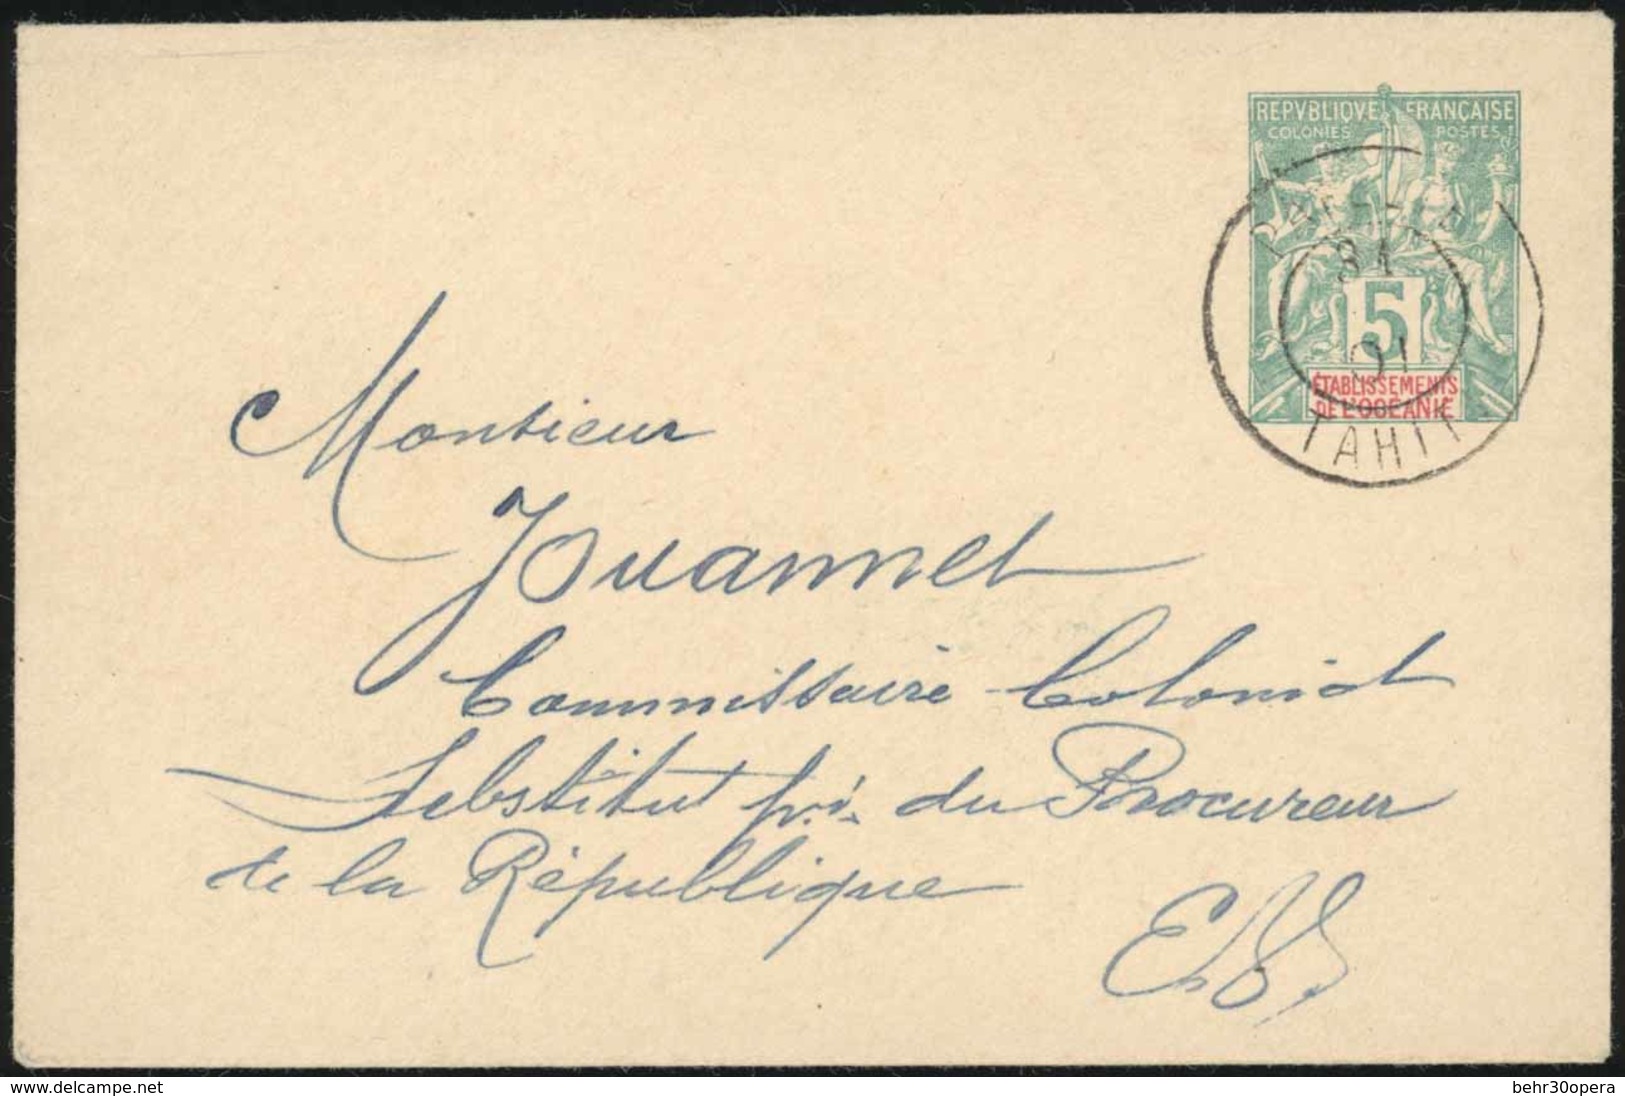 REPVBLIQVE FRANÇAISE
COLONIES POSTES
PAPEETE
31
5
01
ÉTABLISSEMENTS
DE L'OCÉANIE
TAHITI
Monsieur
Jouannet
Commissaire Colonial
Substitut p.i. du Procureur
de la République
E.V.
delcampe.net
behr30opera